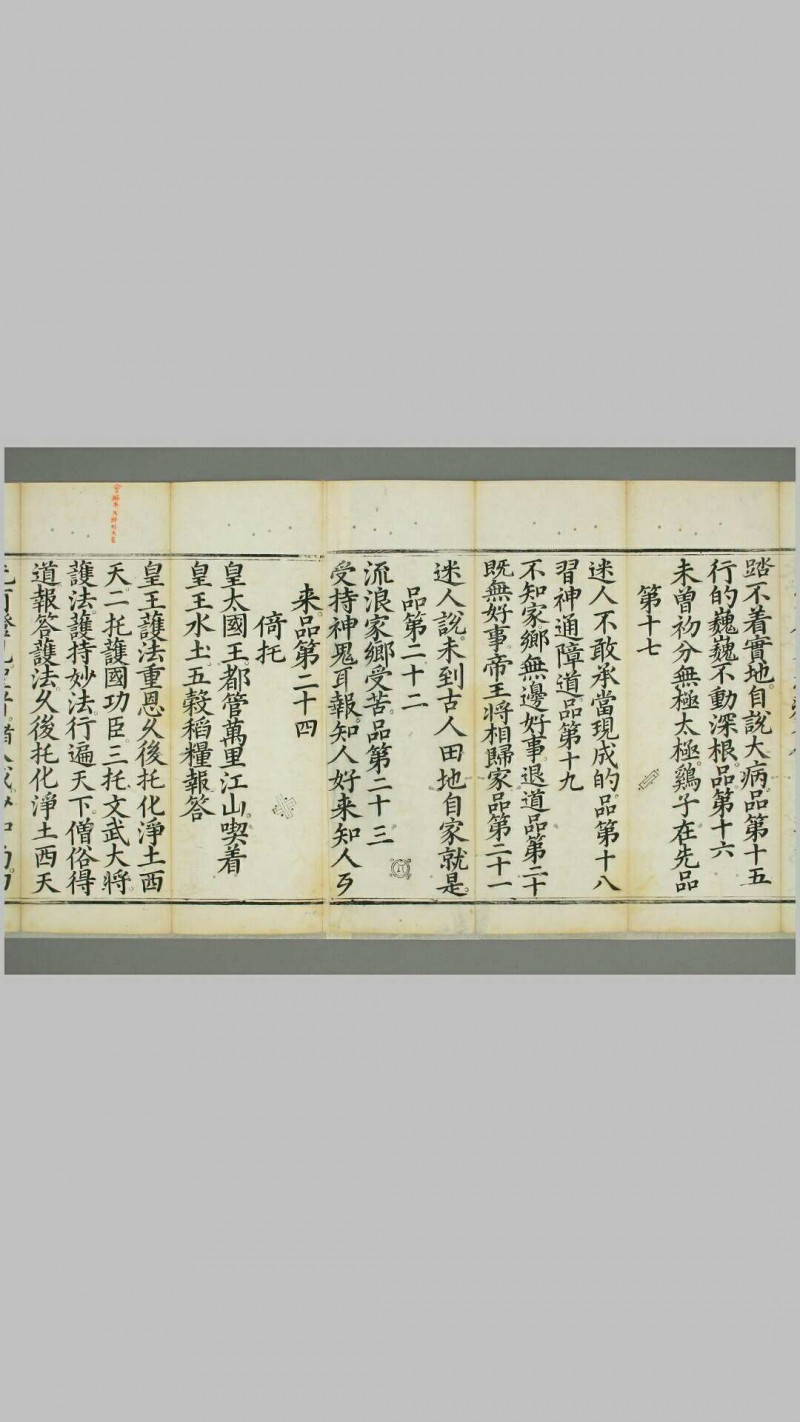 踏不着實地自說大病品第十五
行的巍巍不動深根品第十六
未曾初分無極太極鷄子在先品
第十七
迷人不敢承當現成的品第十八
習神通障道品第十九
不知家鄉無邊好事退道品第二十
既無好事帝王將相歸家品第二十一
迷人說未到古人田地自家就是
品第二十二
流浪家鄉受苦品第二十三
受持神鬼耳報知人好来知人歹
来品第二十四
倚托
皇太國王都管萬里江山喫着
皇王水土五穀稻糧報答
皇王護法重恩久後托化淨土西
天二托護國功臣三托文武大將
護法護持妙法行遍天下僧俗得
道報答護法久後托化淨土西天